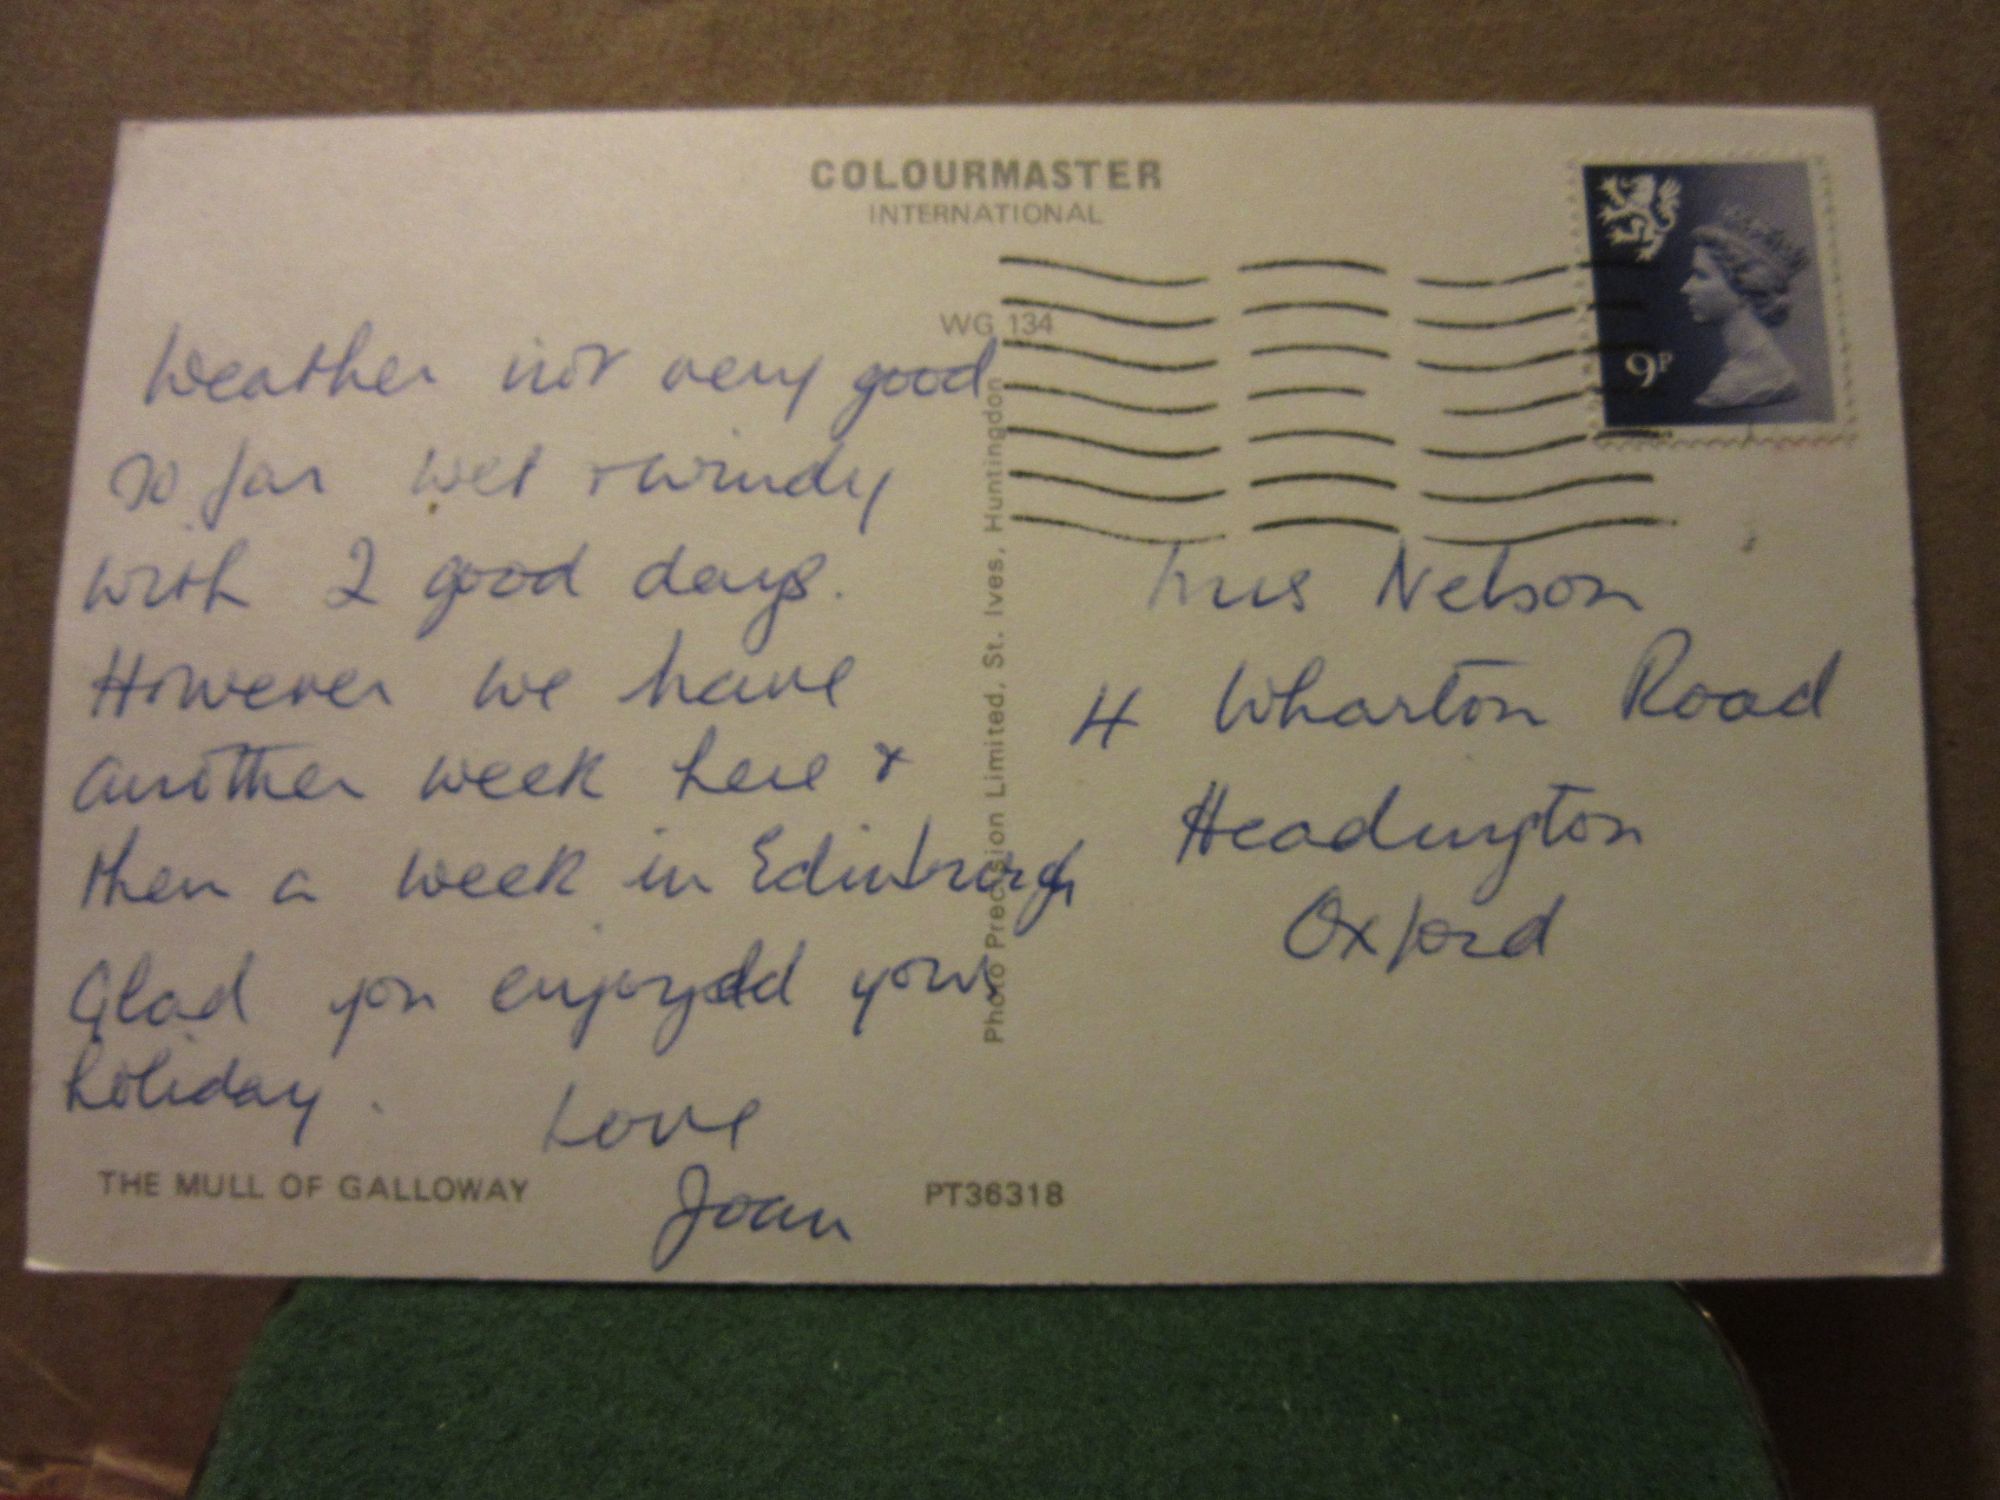 COLOURMASTER
INTERNATIONAL
WG 134
9P
Weather not very good
so far wet + windy
with 2 good days.
However we have
another week here &
then a week in Edinburgh
Glad you enjoyed your
holiday.
Love
Joan
THE MULL OF GALLOWAY
PT36318
Photo Precision Limited, St. Ives, Huntingdon
Mrs Nelson
4 Wharton Road
Headington
Oxford